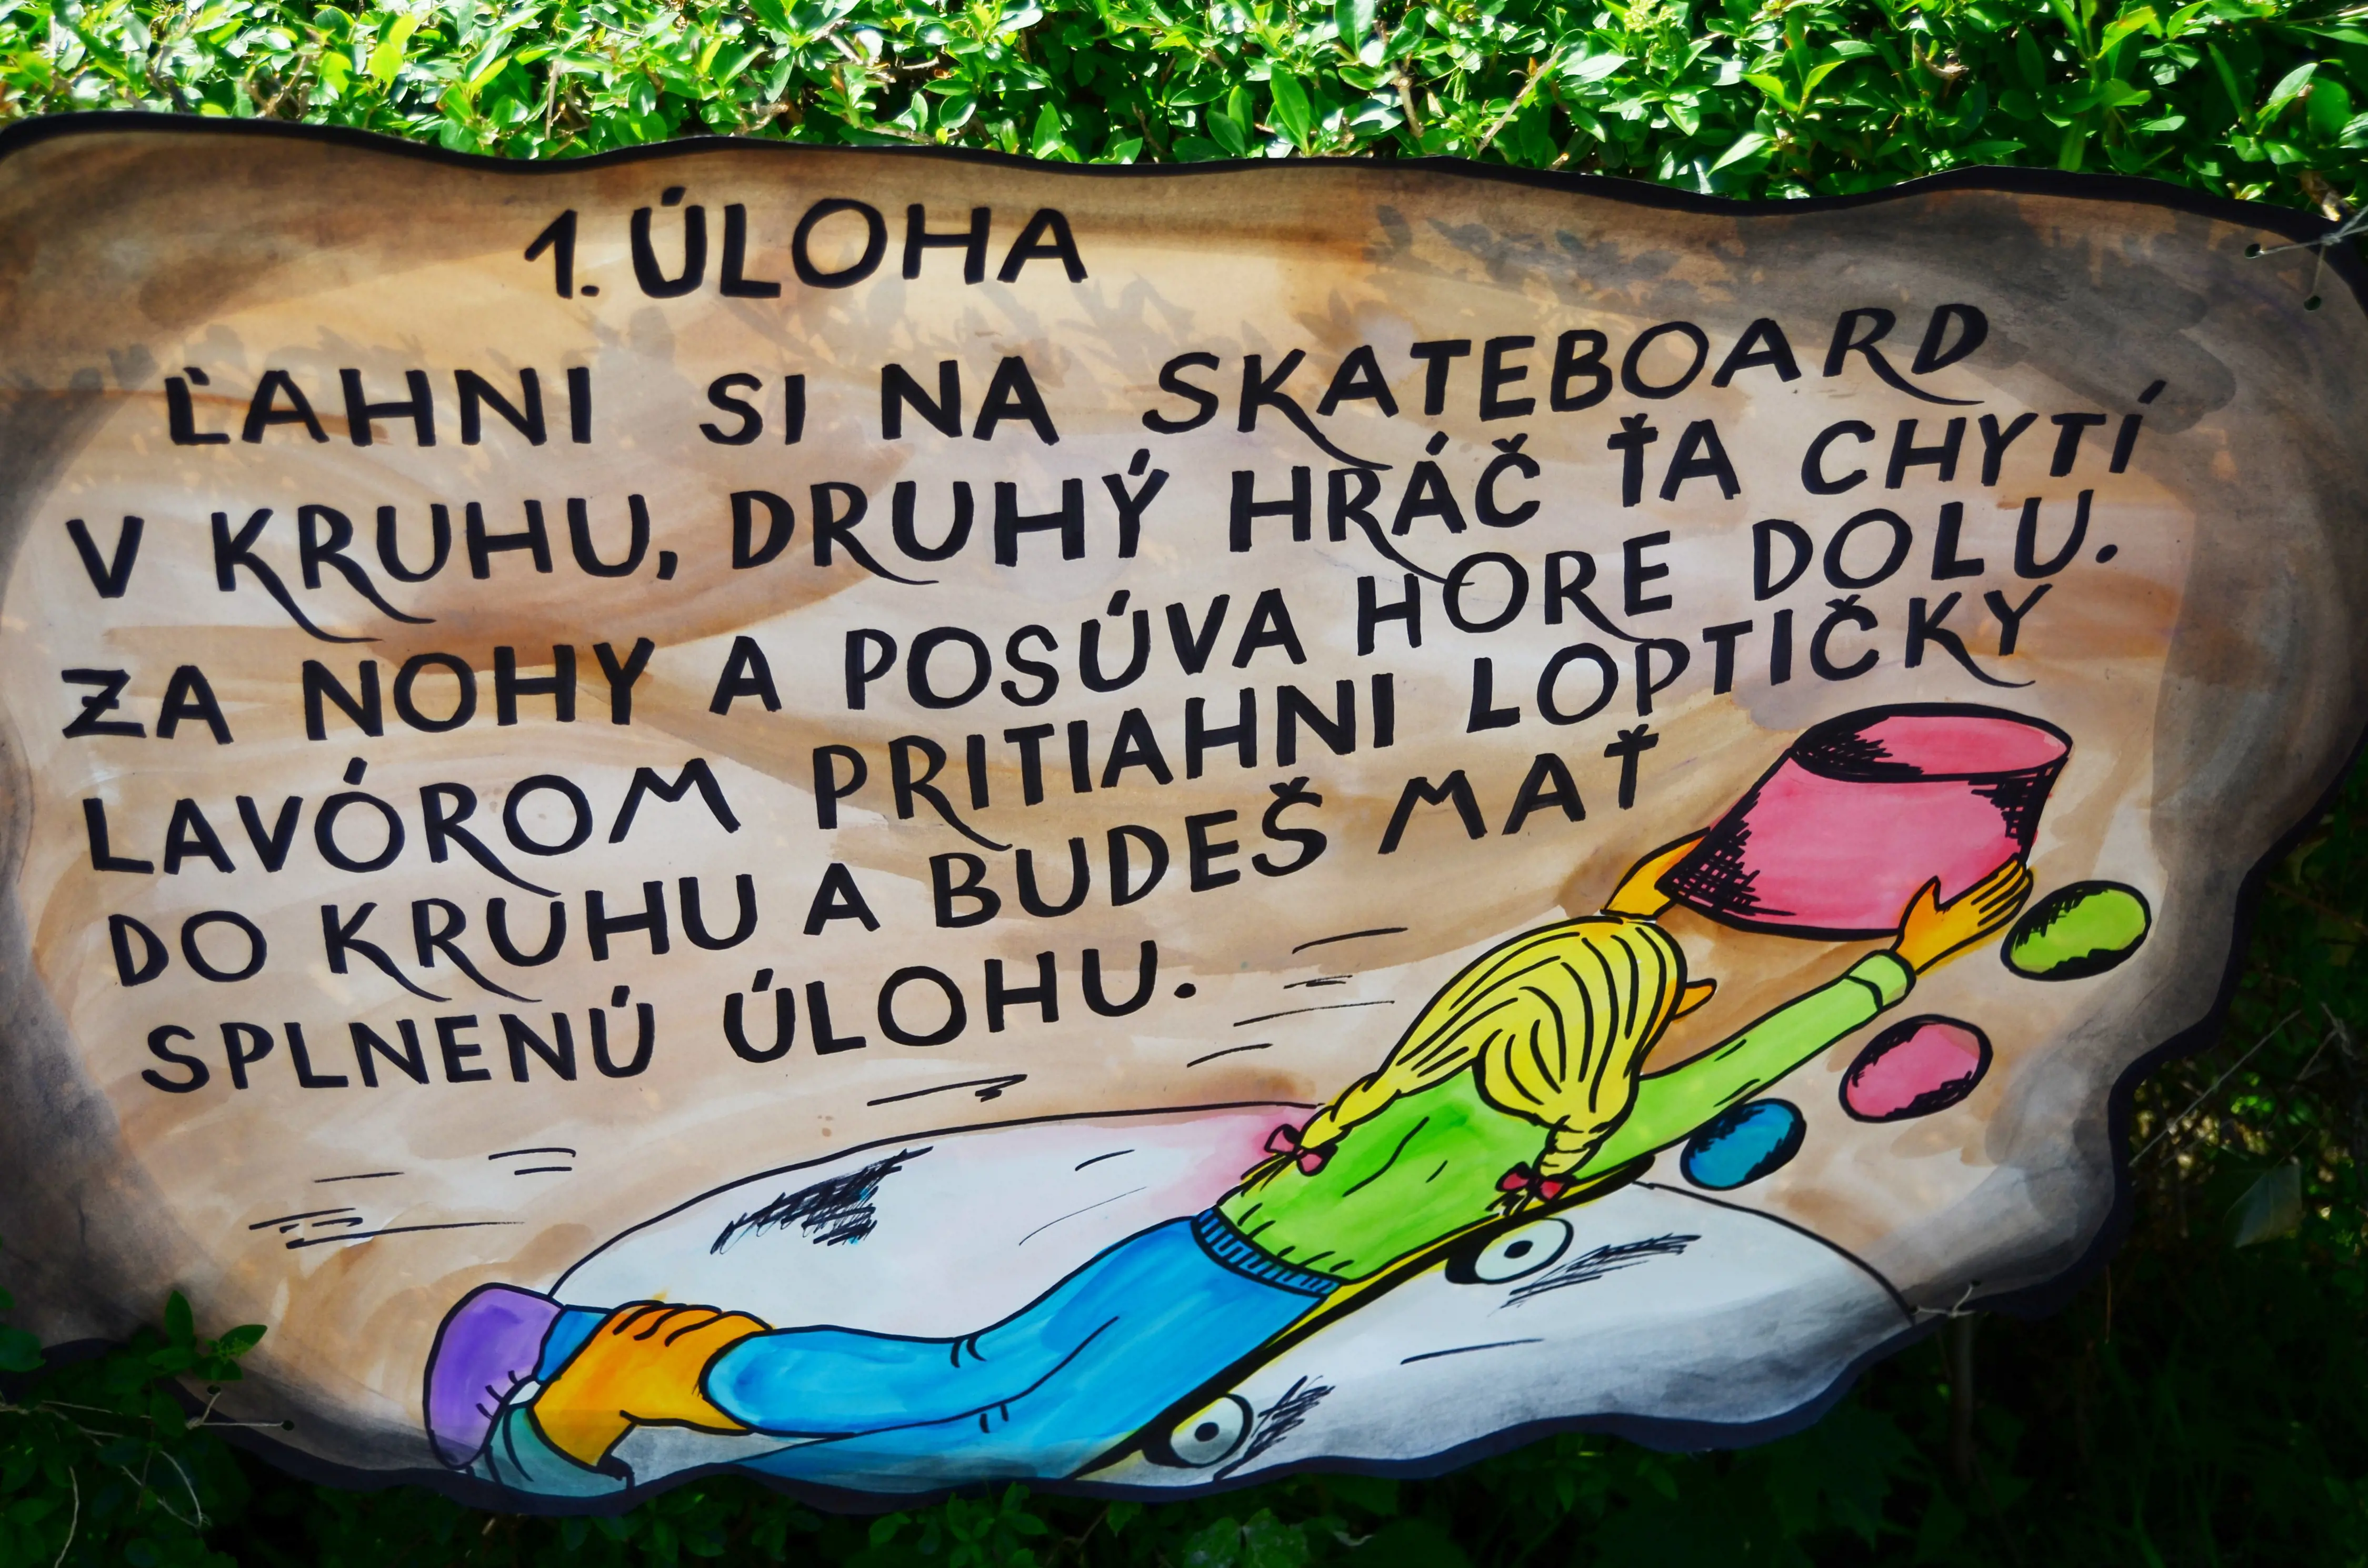 1. ÚLOHA
ĽAHNI SI NA SKATEBOARD
V KRUHU, DRUHÝ HRÁČ ŤA CHYTÍ
ZA NOHY A POSÚVA HORE DOLU.
LAVÓROM PRITIAHNI LOPTIČKY
DO KRUHU A BUDEŠ MAŤ
SPLNENÚ ÚLOHU.